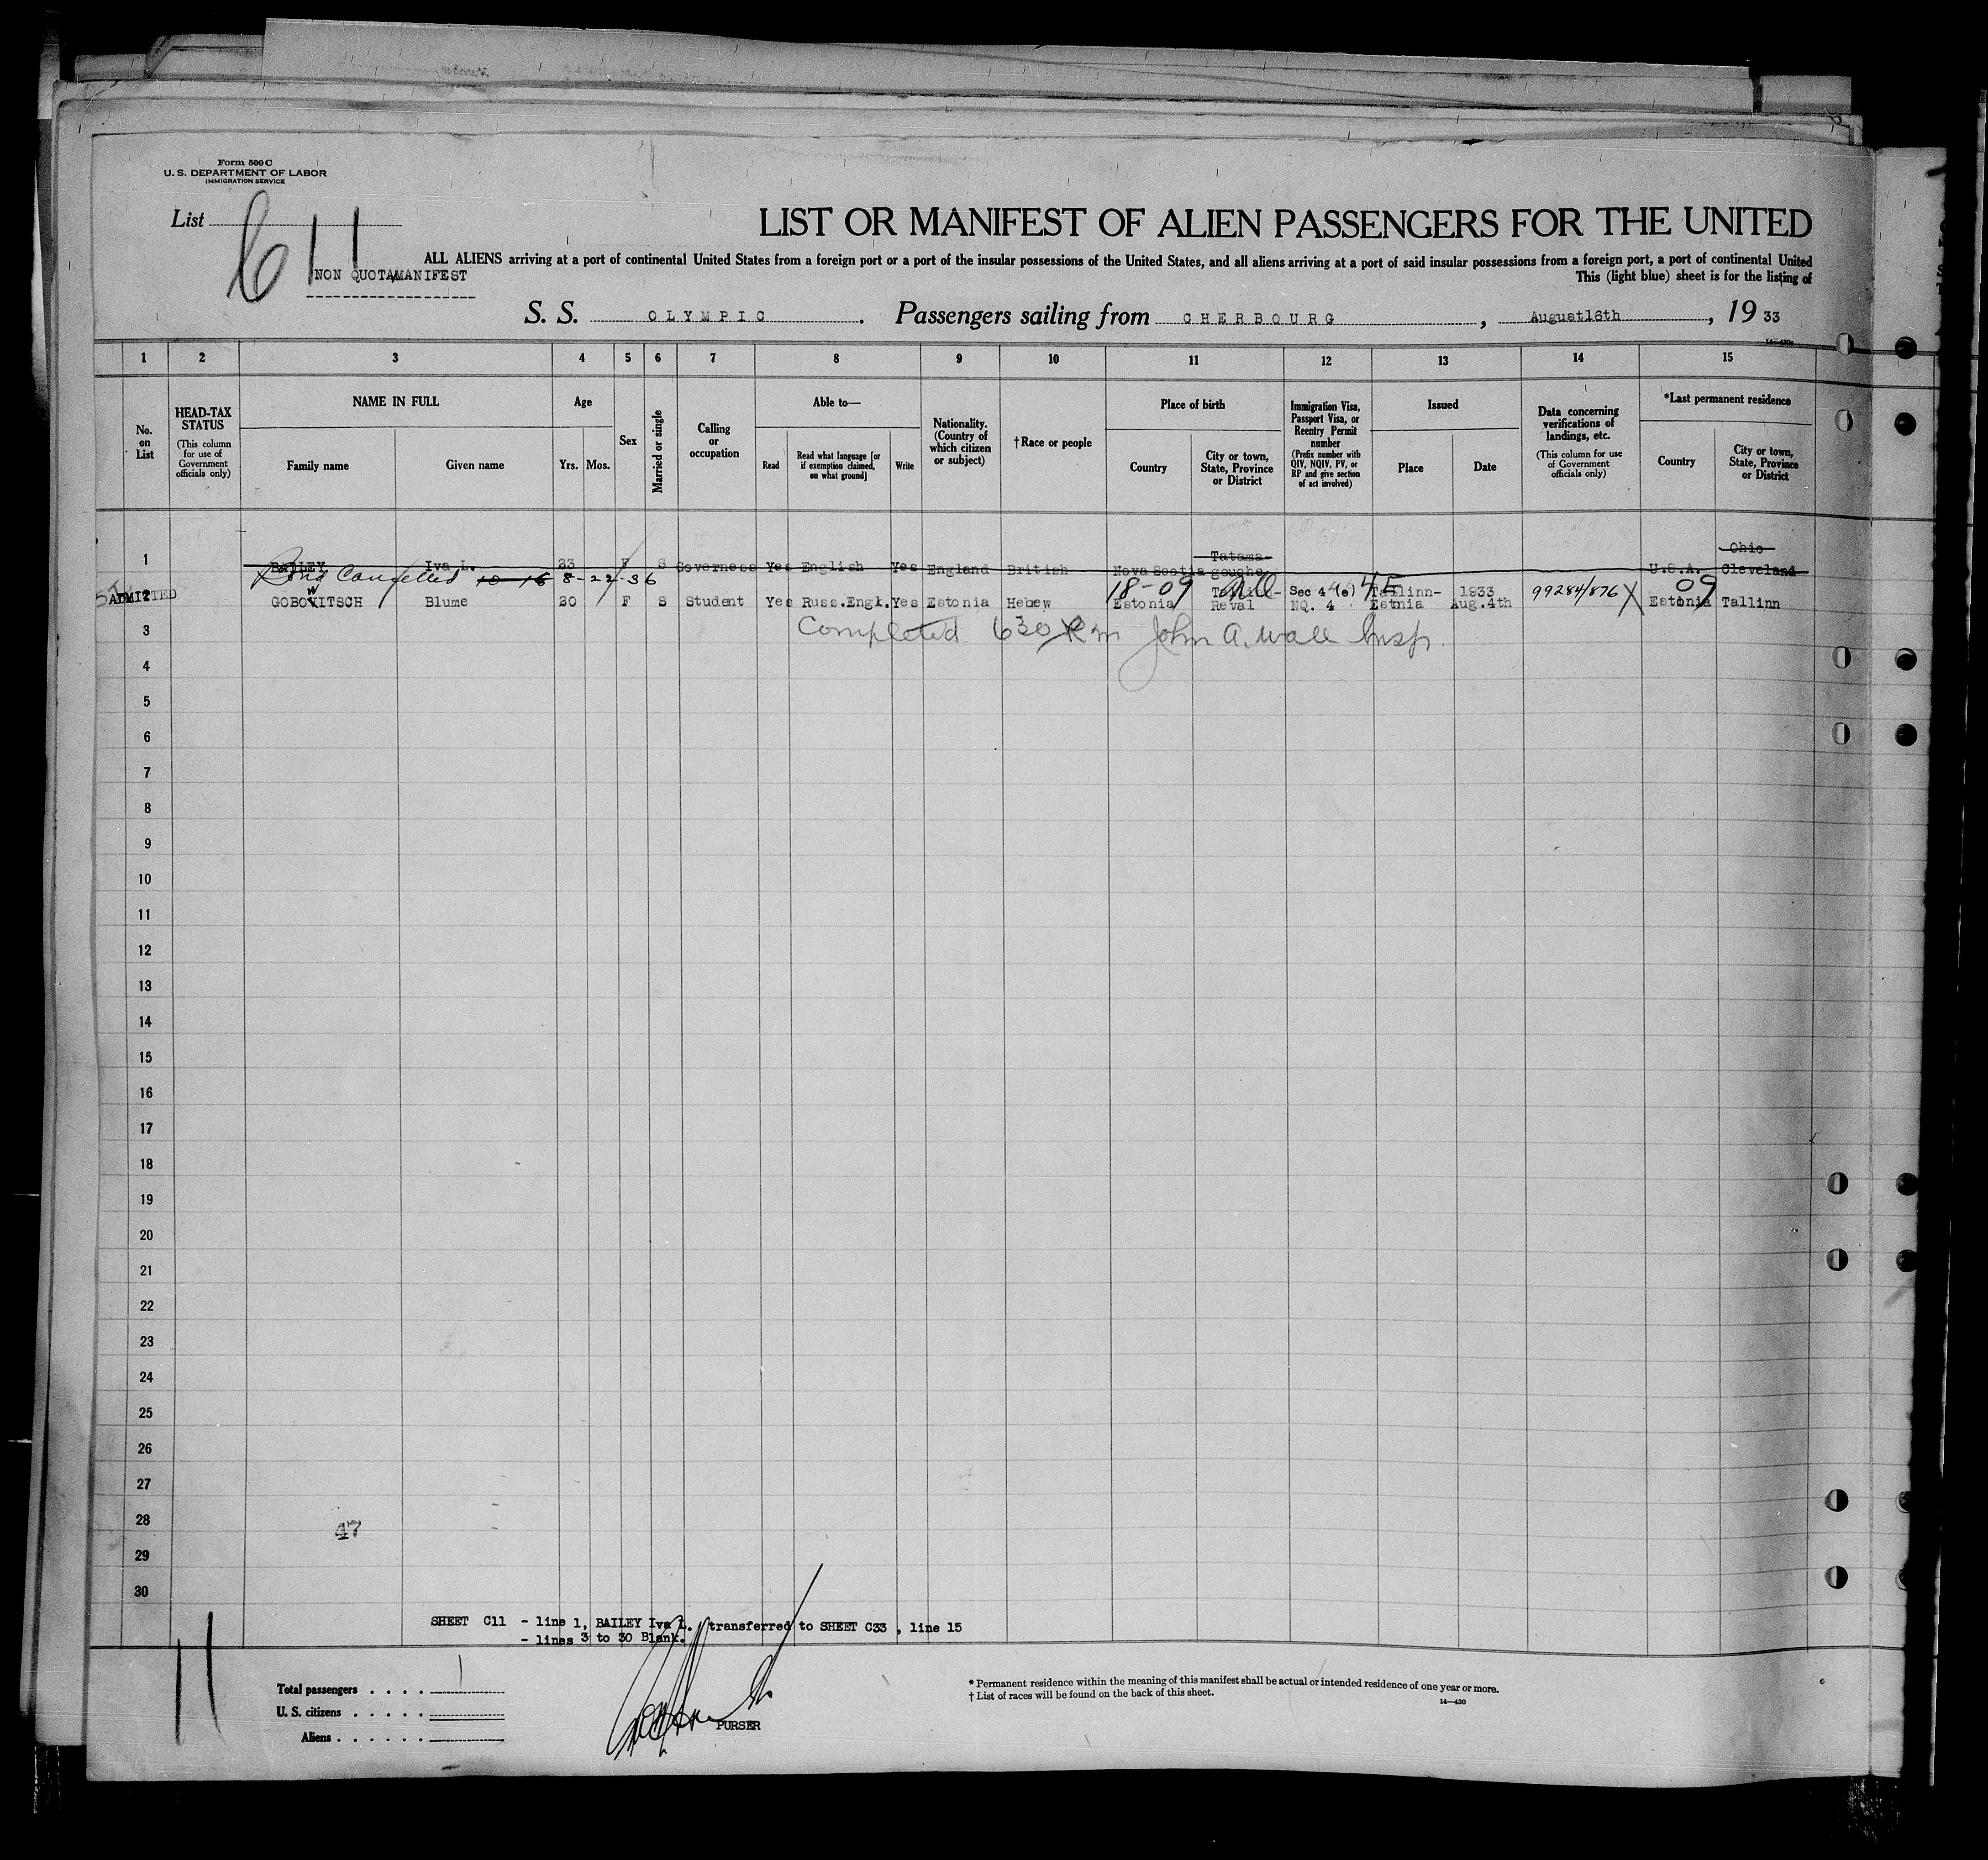 Form 500 C
U. S. DEPARTMENT OF LABOR
IMMIGRATION SERVICE
List
6 11
NON QUOTA MANIFEST
LIST OR MANIFEST OF ALIEN PASSENGERS FOR THE UNITED
ALL ALIENS arriving at a port of continental United States from a foreign port or a port of the insular possessions of the United States, and all aliens arriving at a port of said insular possessions from a foreign port, a port of continental United
This (light blue) sheet is for the listing of
S. S. OLYMPIC. Passengers sailing from CHERBOURG, August16th, 19 33
14—430
1 2 3 4 5 6 7 8 9 10 11 12 13 14 15
No. on List
HEAD-TAX STATUS (This column for use of Government officials only)
NAME IN FULL
Family name Given name
Age
Yrs. Mos.
Sex
Married or single
Calling or occupation
Able to—
Read Read what language [or if exemption claimed, on what ground] Write
Nationality. (Country of which citizen or subject)
† Race or people
Place of birth
Country City or town, State, Province or District
Immigration Visa, Passport Visa, or Reentry Permit number (Prefix number with QIV, NQIV, PV, or RP and give section of act involved)
Issued
Place Date
Data concerning verifications of landings, etc. (This column for use of Government officials only)
*Last permanent residence
Country City or town, State, Province or District
Tatama- Ohio
1 BAILEY Iva L. 23 F S Governess Yes English Yes England British Nova Scotia gouche U.S.A. Cleveland
Bond Cancelled 10-16 8-22-36 18-09 Sec 4 (e) 45 Tallinn- 1933 99284/876 X 09
ADMITTED
2 GOBOVITSCH Blume 20 F S Student Yes Russ.Engl. Yes Estonia Hebew Estonia Reval NQ. 4 Estnia Aug.4th Estonia Tallinn
W
3 Completed 630 Pm John A. Wall Insp.
4
5
6
7
8
9
10
11
12
13
14
15
16
17
18
19
20
21
22
23
24
25
26
27
28 47
29
30
SHEET C11 - line 1, BAILEY Iva L. transferred to SHEET C33 , line 15
- lines 3 to 30 Blank.
11
Total passengers . . . . 1
U. S. citizens . . . . .
Aliens . . . . . .
PURSER
* Permanent residence within the meaning of this manifest shall be actual or intended residence of one year or more.
† List of races will be found on the back of this sheet.
14—430